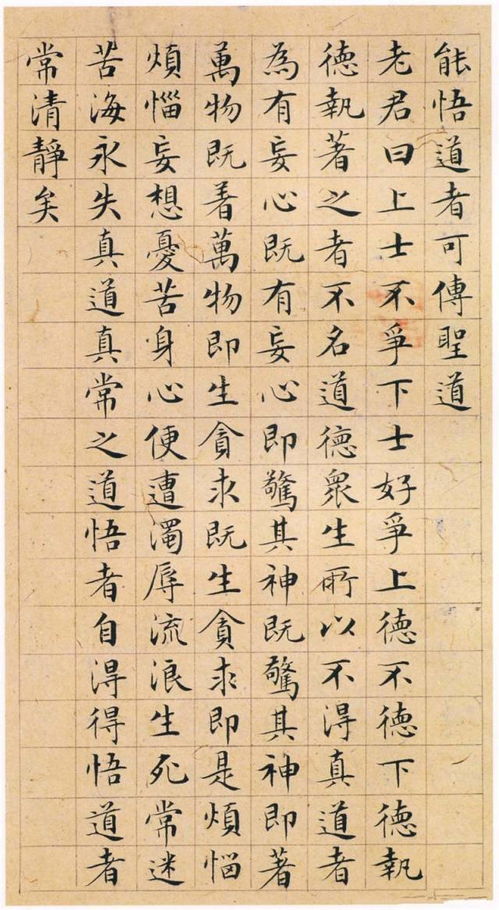 能悟道者可傳聖道
老君曰上士不爭下士好爭上德不德下德執
德執著之者不名道德眾生所以不淂真道者
為有妄心既有妄心即驚其神既驚其神即著
萬物既着萬物即生貪求既生貪求即是煩惱
煩惱妄想憂苦身心便遭濁辱流浪生死常迷
苦海永失真道真常之道悟者自淂得悟道者
常清靜矣